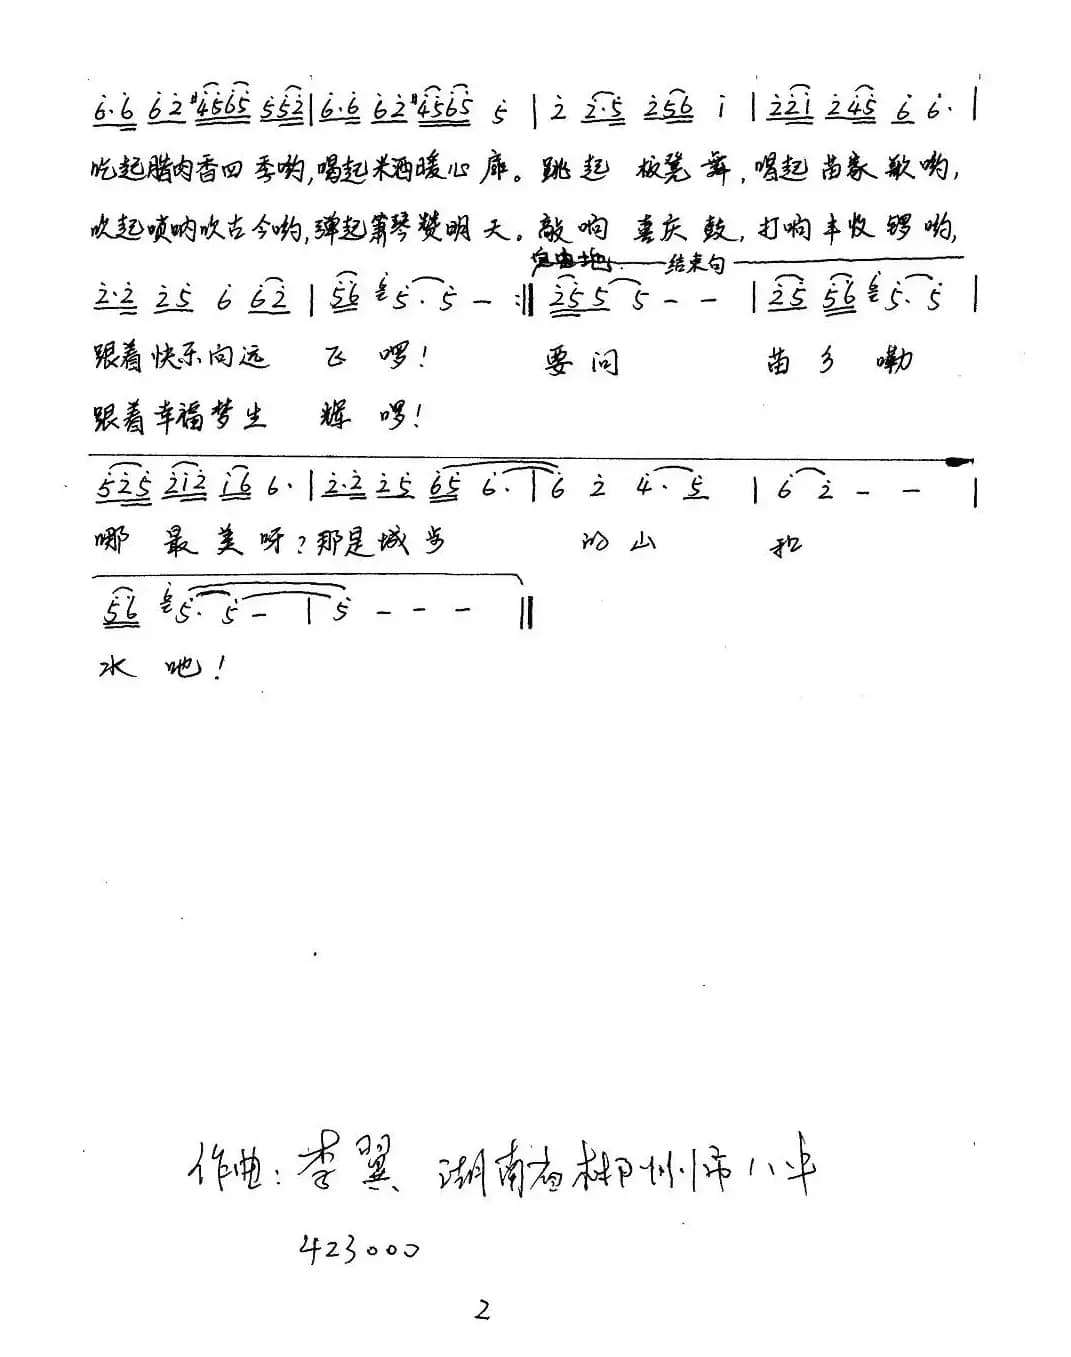 6·6 62 #4565 552 | 6·6 62 #4565 5 | 2 2·5 256 i | 221 245 6 6· |
吃起腊肉香四季哟,喝起米酒暖心扉。跳起 板凳舞,唱起苗家歌哟,
吹起唢呐吹古今哟,弹起箫琴赞明天。敲响 喜庆鼓,打响丰收锣哟,
自由地 结束句
2·2 25 6 62 | 56 6 5·5 - :‖ 255 5 - - | 25 56 6 5·5 |
跟着快乐向远 飞 啰! 要问 苗乡嘞
跟着幸福梦生 辉 啰!
525 212 16 6· | 2·2 25 65 6· | 6 2 4·5 | 6 2 - - |
哪 最美呀?那是城步 的山 和
56 6 5·5 - | 5 - - - ‖
水 吔!
作曲:李翼 湖南省郴州市八中
423000
2